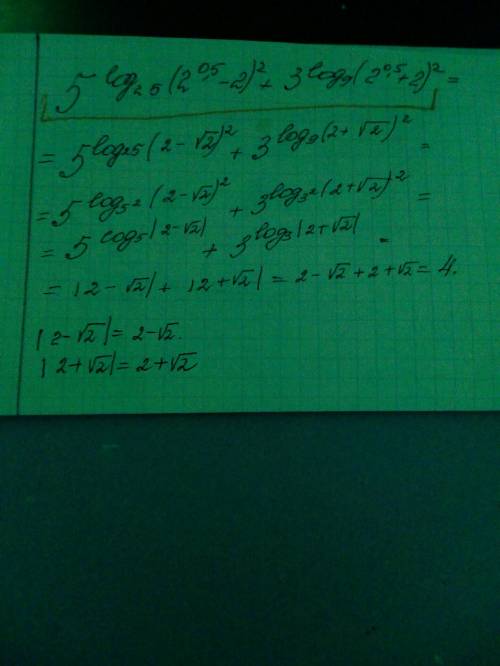 5^log₂₅(2^0,5 - 2)² + 3^log₉(2^0,5 + 2)² =
= 5^log₂₅(2 - √2)² + 3^log₉(2 + √2)² =
= 5^log₅²(2 - √2)² + 3^log₃²(2 + √2)² =
= 5^log₅|2 - √2| + 3^log₃|2 + √2| =
= |2 - √2| + |2 + √2| = 2 - √2 + 2 + √2 = 4.
|2 - √2| = 2 - √2.
|2 + √2| = 2 + √2